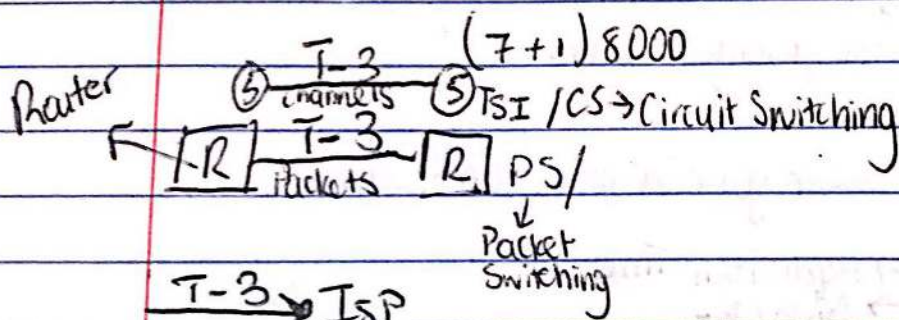 T-3 (7+1) 8000
Router (5) channels (5) TSI / CS → Circuit Switching
T-3
R Packets R PS/
↓
Packet
Switching
T-3 → ISP